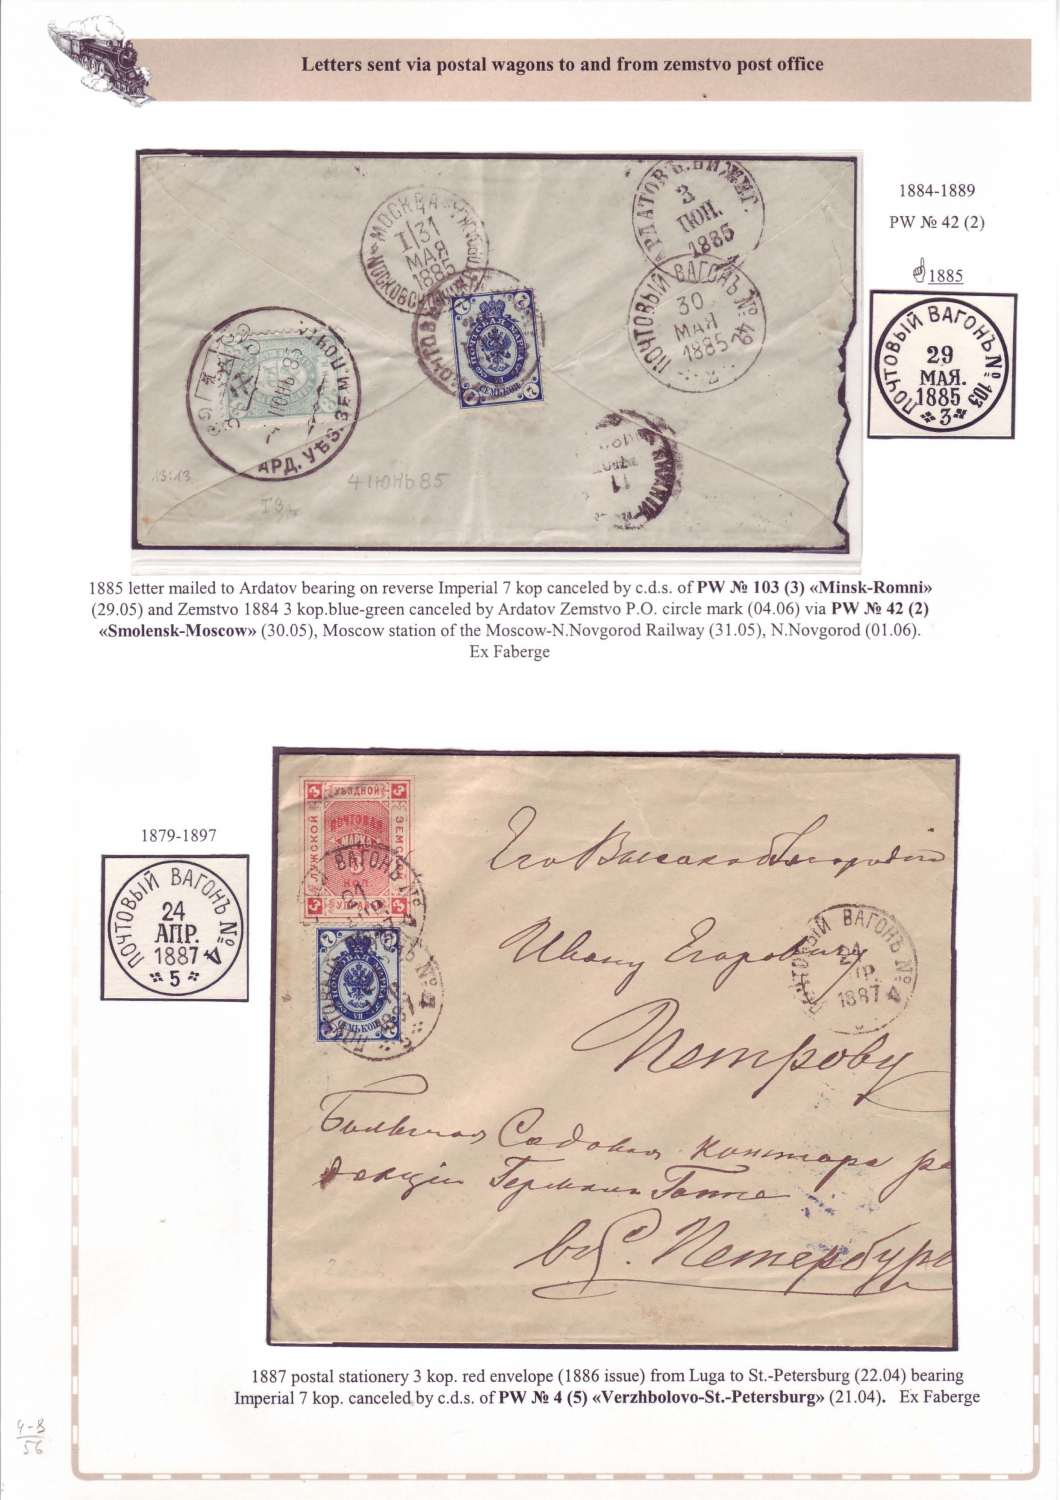 Letters sent via postal wagons to and from zemstvo post office
1884-1889
PW № 42 (2)
1885
ПОЧТОВЫЙ ВАГОНЪ № 103
29
МАЯ.
1885
3
МОСКВА
I/31
МАЯ
1885
3
ІЮН.
1885
ПОЧТОВЫЙ ВАГОНЪ № 42
30
МАЯ
1885
2
7
СЕМЬ КОП
АРД. УѢЗ. ЗЕМ. ПОЧТА
ІЮНЬ 85
13:13
4 ІЮНЬ 85
11
1885 letter mailed to Ardatov bearing on reverse Imperial 7 kop canceled by c.d.s. of PW № 103 (3) «Minsk-Romni»
(29.05) and Zemstvo 1884 3 kop.blue-green canceled by Ardatov Zemstvo P.O. circle mark (04.06) via PW № 42 (2)
«Smolensk-Moscow» (30.05), Moscow station of the Moscow-N.Novgorod Railway (31.05), N.Novgorod (01.06).
Ex Faberge
1879-1897
ПОЧТОВЫЙ ВАГОНЪ № 4
24
АПР.
1887
5
УѢЗДНОЙ
ЛУЖСКОЙ
ПОЧТОВАЯ
МАРКА
ЗЕМСКОЙ
3
КОП
ВАГОНЪ №
7
СЕМЬ КОП
Его Высокоблагородію
Ивану Егоровичу
Петрову
ПОЧТОВЫЙ ВАГОНЪ № 4
1887
Большая Садовая контора ре
дакціи Германъ Гоппе
въ С. Петербург
1887 postal stationery 3 kop. red envelope (1886 issue) from Luga to St.-Petersburg (22.04) bearing
Imperial 7 kop. canceled by c.d.s. of PW № 4 (5) «Verzhbolovo-St.-Petersburg» (21.04). Ex Faberge
4-8
56